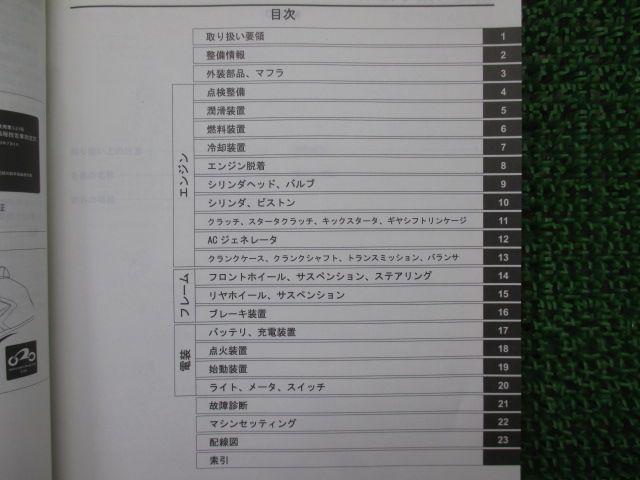 目次
取り扱い要領 1
整備情報 2
外装部品、マフラ 3
エンジン
点検整備 4
潤滑装置 5
燃料装置 6
冷却装置 7
エンジン脱着 8
シリンダヘッド、バルブ 9
シリンダ、ピストン 10
クラッチ、スタータクラッチ、キックスタータ、ギヤシフトリンケージ 11
ACジェネレータ 12
クランクケース、クランクシャフト、トランスミッション、バランサ 13
フレーム
フロントホイール、サスペンション、ステアリング 14
リヤホイール、サスペンション 15
ブレーキ装置 16
電装
バッテリ、充電装置 17
点火装置 18
始動装置 19
ライト、メータ、スイッチ 20
故障診断 21
マシンセッティング 22
配線図 23
索引